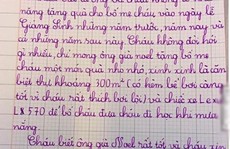 nặng tặng quà cho bố mẹ cháu vào ngày lễ
Giáng Sinh những năm trước, năm nay và
những năm sau này. Cháu không đòi hỏi
gì nhiều, chỉ mong ông già noel tặng bố mẹ
cháu một món quà nho nhỏ, xinh xinh là căn
biệt thự khoảng 300m² (có kèm bể bơi càng
tốt vì cháu rất thích bơi lội) và chiếc xe Lexu
LX 570 để bố cháu đưa cháu đi học khi mưa
nắng.
Cháu biết ông già Noel rất tốt và cháu xin